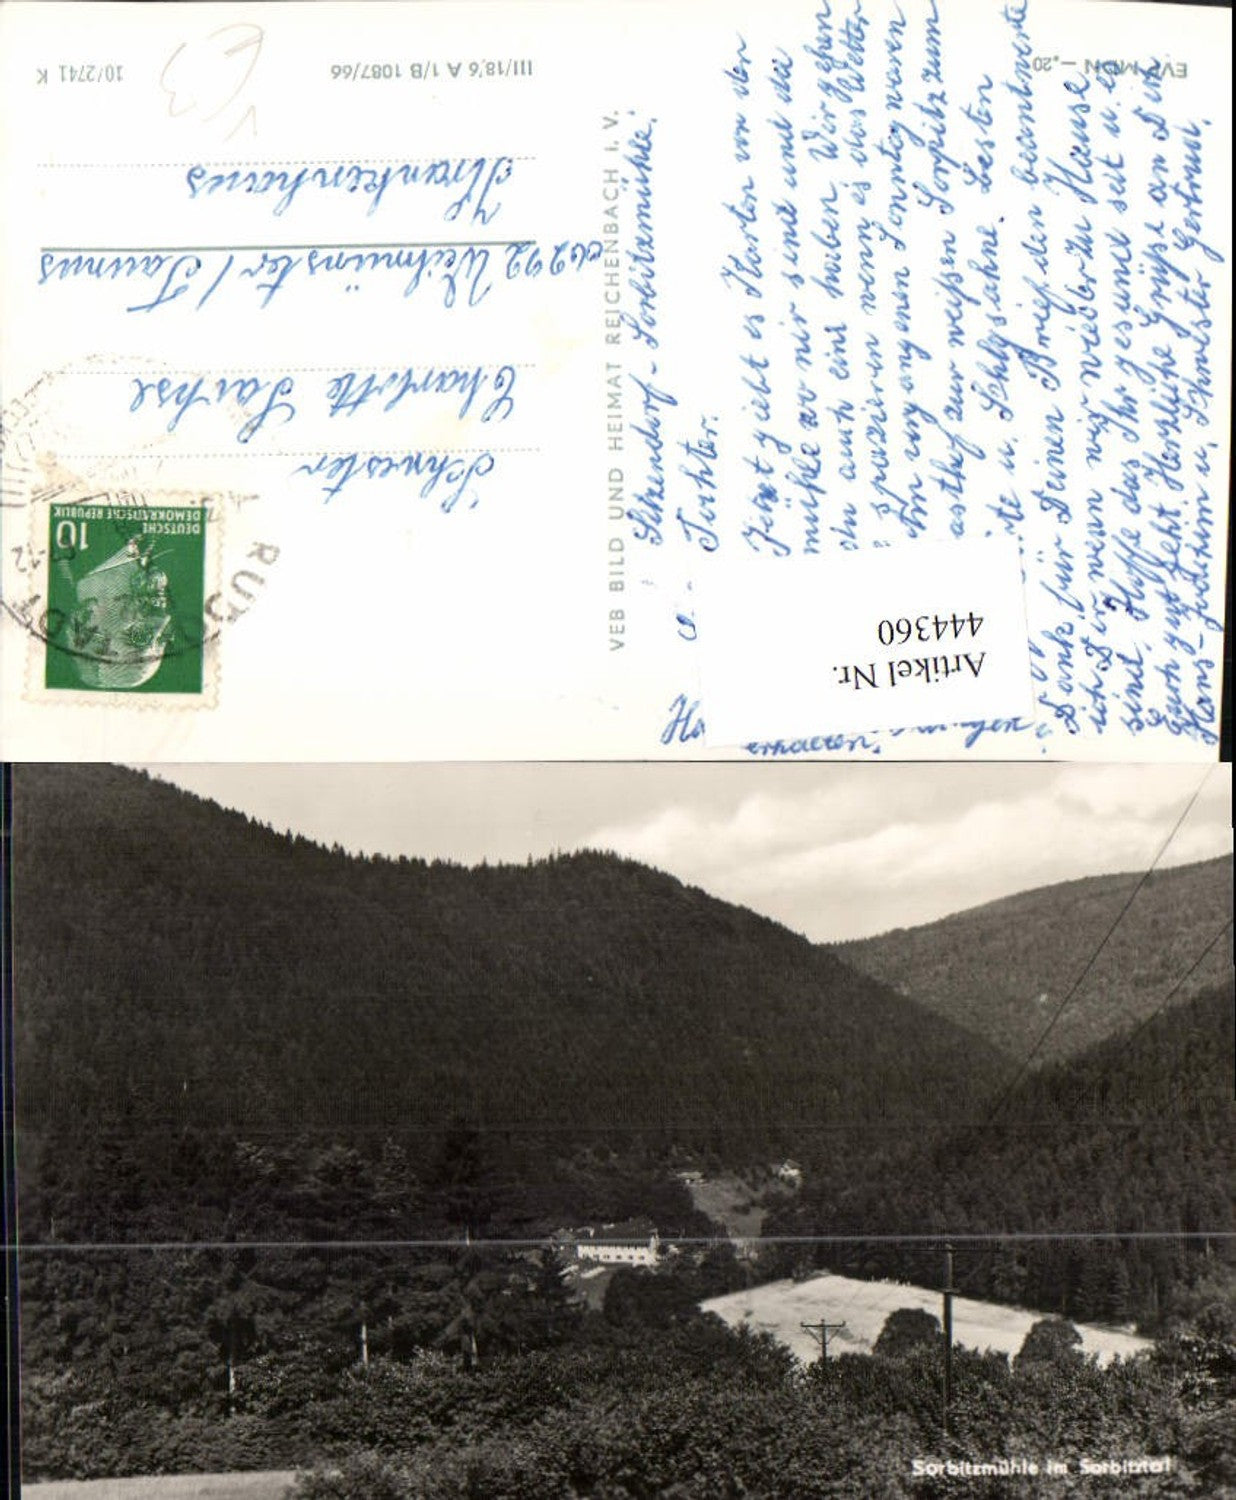 EVP MDN –,20
III/18/6 A 1/B 1087/66
10/2741 K
VEB BILD UND HEIMAT REICHENBACH I. V.
DEUTSCHE
DEMOKRATISCHE REPUBLIK
10
Schwester
Charlotte Sachse
6292 Weilmünster / Taunus
Krankenhaus
Sitzendorf - Sorbitzmühle!
Tochter.
Jetzt giebt es Karten von der
mühle wo wir sind und da
du auch eine haben. Wir gehen
spazieren wenn es das Wetter
Am vergangenen Sonntag waren
zur weißen zum
Besten
Dank für Deinen Brief den beantworte
ich Dir wenn wir wieder zu Hause
sind. Hoffe das Ihr gesund seit u. es
Euch gut geht. Herzliche Grüße an Dich
Hans-Joachim u. Schwester Gertrud.
Artikel Nr.
444360
Sorbitzmühle im Sorbitztal